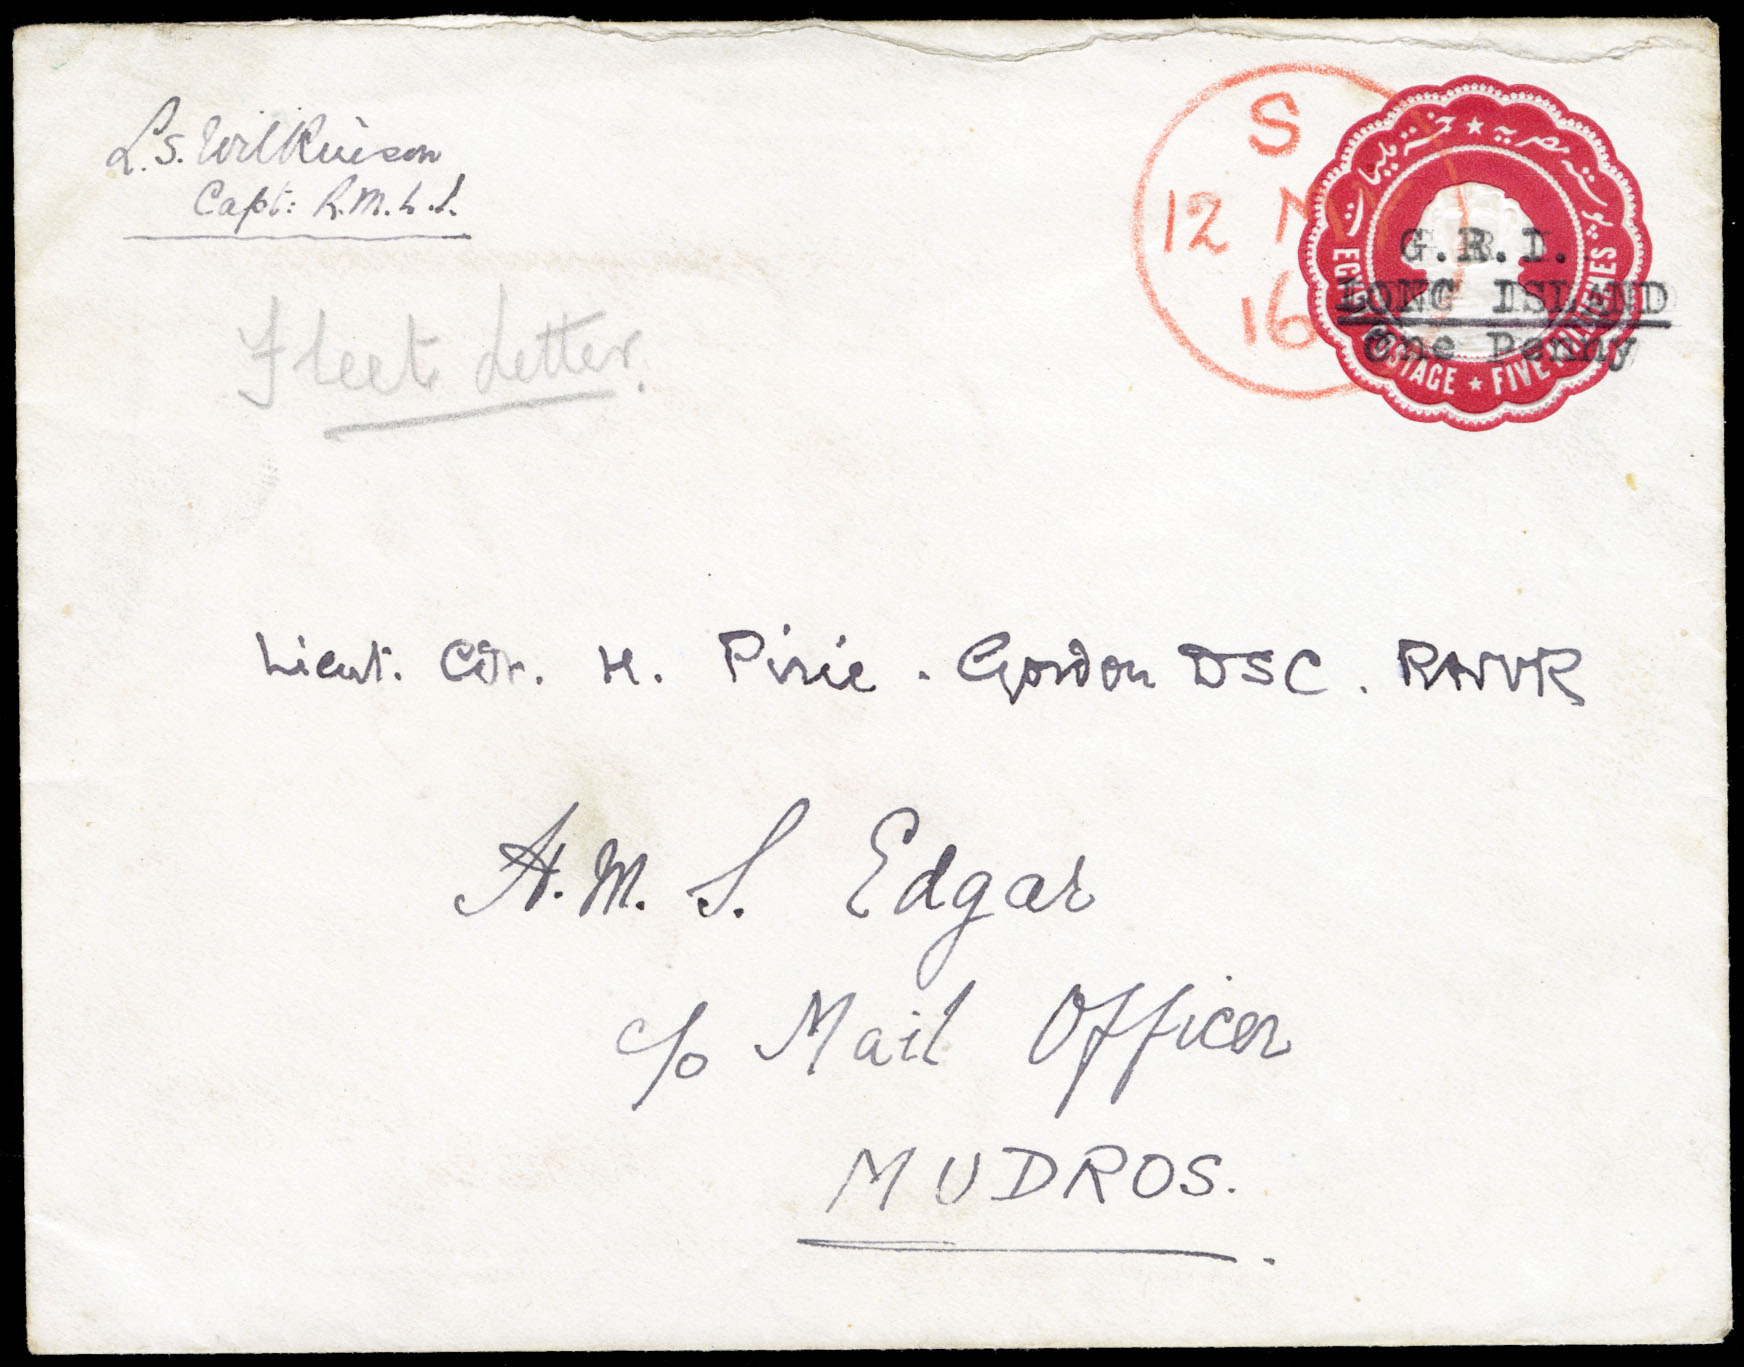 L.S. Wilkinson
Capt: R.M.L.I.
Fleet Letter.
S
12 M
16
G.R.I.
LONG ISLAND
One Penny
EGYPT POSTAGE ★ FIVE MILLIEMES
Lieut. Cdr. H. Pirie-Gordon DSC. RNVR
H.M.S. Edgar
c/o Mail Officer
MUDROS.